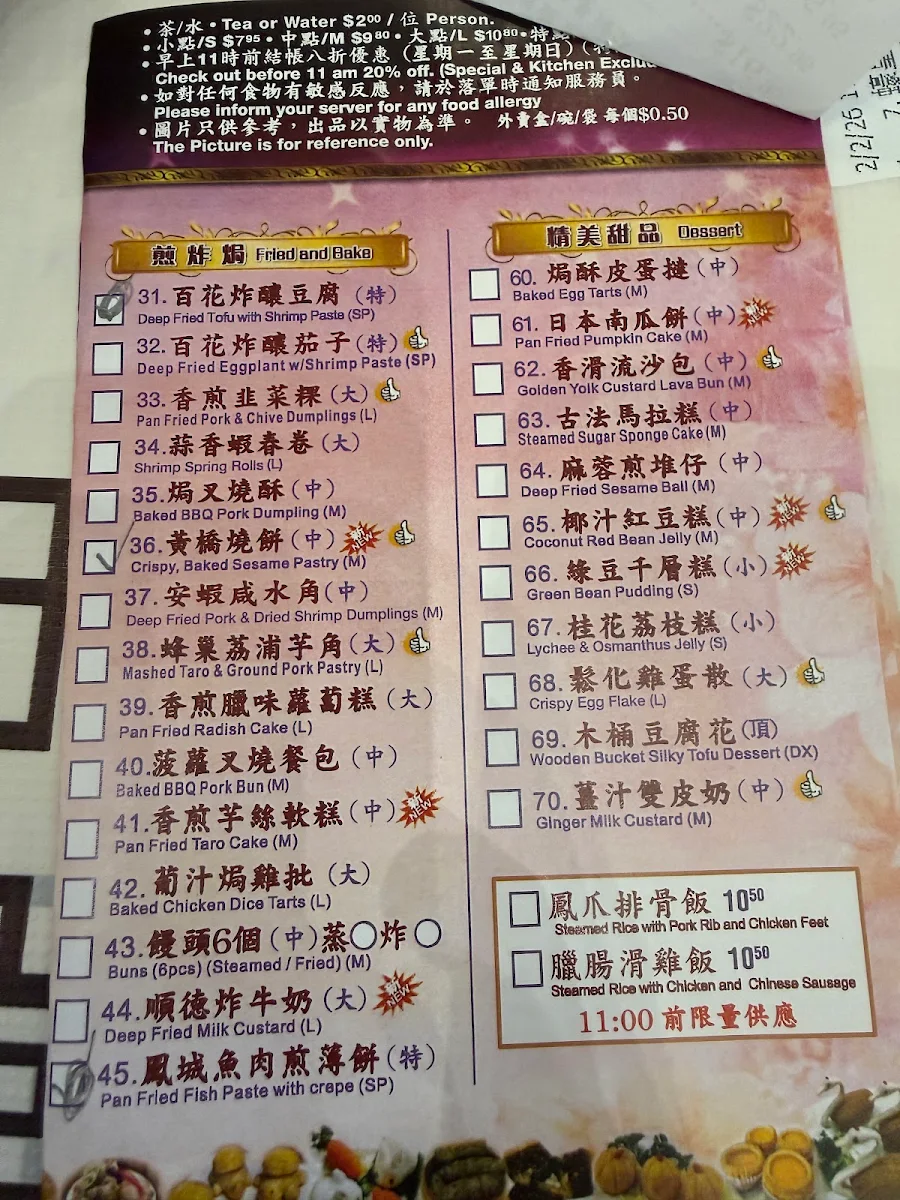 • 茶/水 • Tea or Water $2.00 / 位 Person.
• 小點/S $7.95 • 中點/M $9.80 • 大點/L $10.80 • 特點
• 早上11時前結帳八折優惠 (星期一至星期日)
Check out before 11 am 20% off. (Special & Kitchen
• 如對任何食物有敏感反應，請於落單時通知服務員。
Please inform your server for any food allergy
• 圖片只供參考，出品以實物為準。 外賣盒/碗/袋 每個$0.50
The Picture is for reference only.
2/2/26
煎炸焗 Fried and Bake
31. 百花炸釀豆腐 (特)
Deep Fried Tofu with Shrimp Paste (SP)
32. 百花炸釀茄子 (特)
Deep Fried Eggplant w/Shrimp Paste (SP)
33. 香煎韭菜粿 (大)
Pan Fried Pork & Chive Dumplings (L)
34. 蒜香蝦春卷 (大)
Shrimp Spring Rolls (L)
35. 焗叉燒酥 (中)
Baked BBQ Pork Dumpling (M)
36. 黃橋燒餅 (中) 新 NEW
Crispy, Baked Sesame Pastry (M)
37. 安蝦咸水角 (中)
Deep Fried Pork & Dried Shrimp Dumplings (M)
38. 蜂巢荔浦芋角 (大)
Mashed Taro & Ground Pork Pastry (L)
39. 香煎臘味蘿蔔糕 (大)
Pan Fried Radish Cake (L)
40. 菠蘿叉燒餐包 (中)
Baked BBQ Pork Bun (M)
41. 香煎芋絲軟糕 (中) 新 NEW
Pan Fried Taro Cake (M)
42. 葡汁焗雞批 (大)
Baked Chicken Dice Tarts (L)
43. 饅頭6個 (中) 蒸○炸○
Buns (6pcs) (Steamed / Fried) (M)
44. 順德炸牛奶 (大) 新 NEW
Deep Fried Milk Custard (L)
45. 鳳城魚肉煎薄餅 (特)
Pan Fried Fish Paste with crepe (SP)
精美甜品 Dessert
60. 焗酥皮蛋撻 (中)
Baked Egg Tarts (M)
61. 日本南瓜餅 (中) 新 NEW
Pan Fried Pumpkin Cake (M)
62. 香滑流沙包 (中)
Golden Yolk Custard Lava Bun (M)
63. 古法馬拉糕 (中)
Steamed Sugar Sponge Cake (M)
64. 麻蓉煎堆仔 (中)
Deep Fried Sesame Ball (M)
65. 椰汁紅豆糕 (中) 新 NEW
Coconut Red Bean Jelly (M)
66. 綠豆千層糕 (小) 新 NEW
Green Bean Pudding (S)
67. 桂花荔枝糕 (小)
Lychee & Osmanthus Jelly (S)
68. 鬆化雞蛋散 (大)
Crispy Egg Flake (L)
69. 木桶豆腐花 (頂)
Wooden Bucket Silky Tofu Dessert (DX)
70. 薑汁雙皮奶 (中)
Ginger Milk Custard (M)
鳳爪排骨飯 10.50
Steamed Rice with Pork Rib and Chicken Feet
臘腸滑雞飯 10.50
Steamed Rice with Chicken and Chinese Sausage
11:00 前限量供應